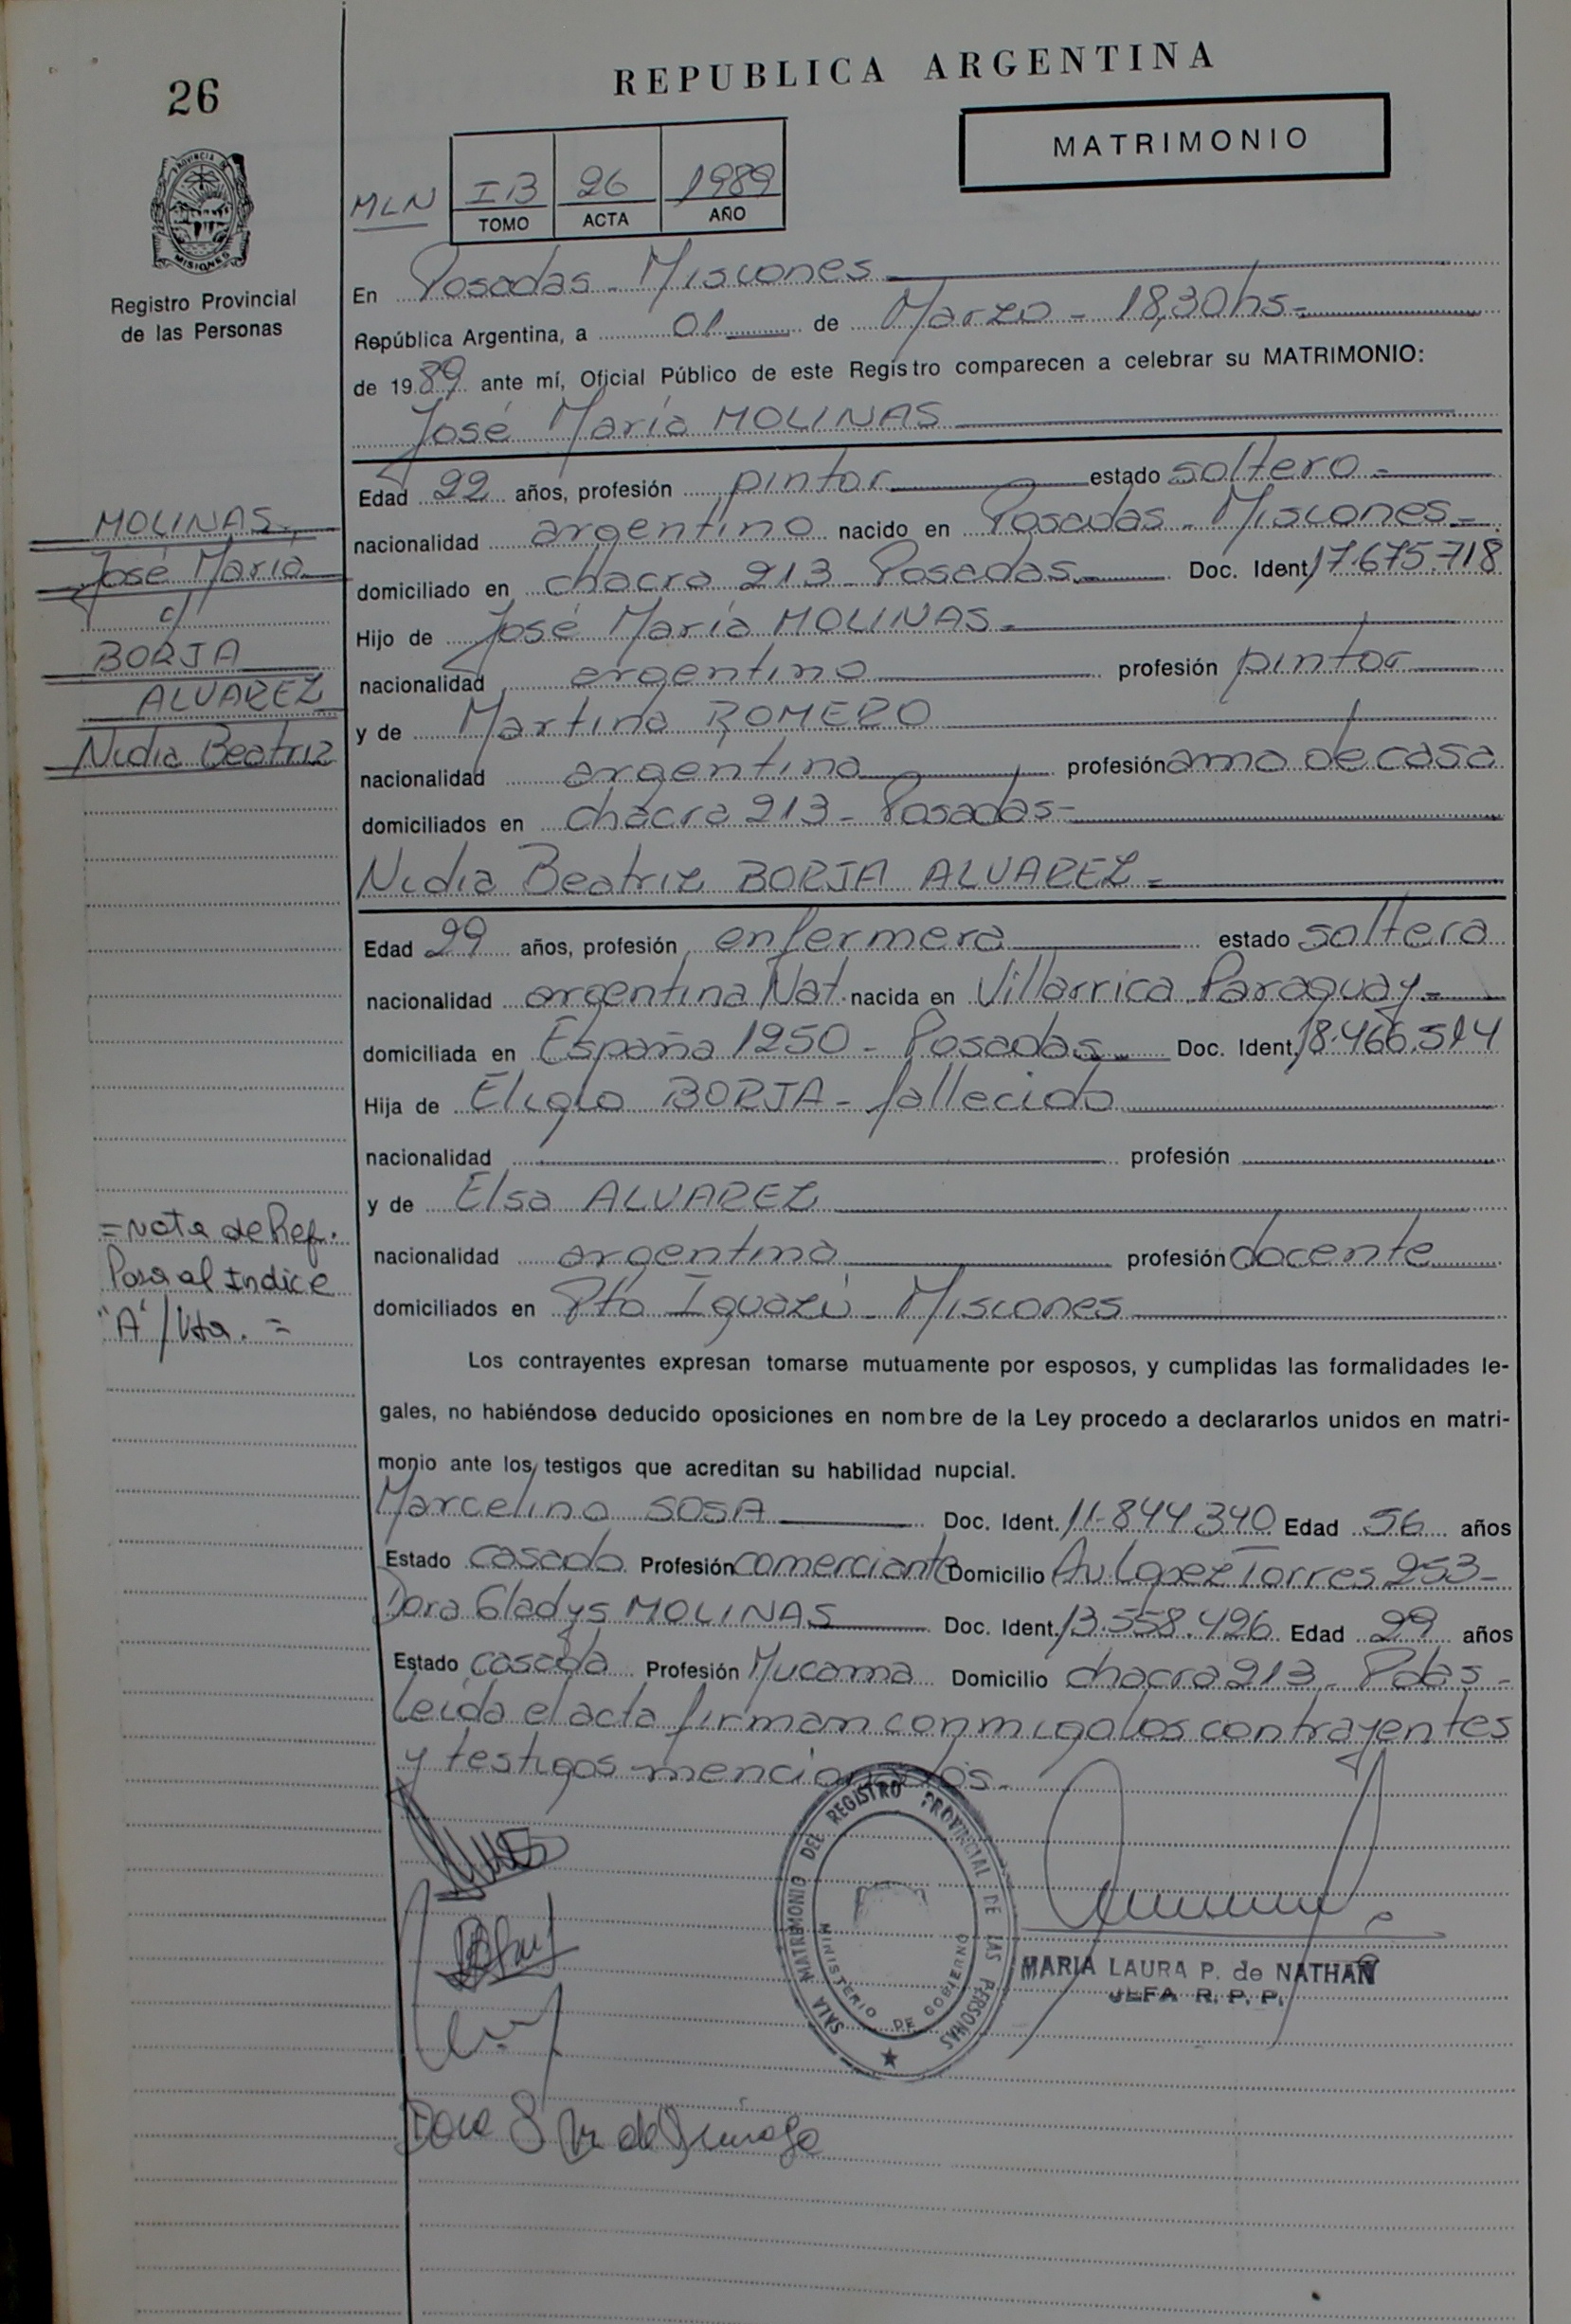 26
REPUBLICA ARGENTINA
MATRIMONIO
PROVINCIA DE
MISIONES
Registro Provincial
de las Personas
MLN
IB 26 1989
TOMO ACTA AÑO
En Posadas - Misiones
República Argentina, a 01 de Marzo - 18,30hs-
de 1989 ante mí, Oficial Público de este Registro comparecen a celebrar su MATRIMONIO:
José María MOLINAS
Edad 22 años, profesión pintor estado soltero-
nacionalidad argentino nacido en Posadas - Misiones-
domiciliado en chacra 213 - Posadas Doc. Ident. 17.675.718
Hijo de José María MOLINAS-
nacionalidad argentino profesión pintor
y de Martina ROMERO
nacionalidad argentina profesión ama de casa
domiciliados en chacra 213 - Posadas-
Nidia Beatriz BORJA ALVAREZ-
Edad 29 años, profesión enfermera estado soltera
nacionalidad argentina Nat. nacida en Villarrica Paraguay-
domiciliada en España 1250 - Posadas Doc. Ident. 18.466.514
Hija de Eligio BORJA - fallecido
nacionalidad profesión
y de Elsa ALVAREZ
nacionalidad argentina profesión docente
domiciliados en Pto Iguazú - Misiones
Los contrayentes expresan tomarse mutuamente por esposos, y cumplidas las formalidades le-
gales, no habiéndose deducido oposiciones en nombre de la Ley procedo a declararlos unidos en matri-
monio ante los testigos que acreditan su habilidad nupcial.
Marcelino SOSA Doc. Ident. 11.844.340 Edad 56 años
Estado casado Profesión comerciante Domicilio Av Lopez Torres 253-
Dora Gladys MOLINAS Doc. Ident. 13.558.426 Edad 29 años
Estado casada Profesión Mucama Domicilio chacra 213 - Pdas-
leída el acta firman conmigo los contrayentes
y testigos mencionados-
MOLINAS,
José María
c/
BORJA
ALVAREZ
Nidia Beatriz
=Nota de Ref.
Pasa al Indice
"A"/Vta. =
SALA MATRIMONIO DEL REGISTRO PROVINCIAL DE LAS PERSONAS
MINISTERIO DE GOBIERNO
MARIA LAURA P. de NATHAN
JEFA R. P. P.
Dora